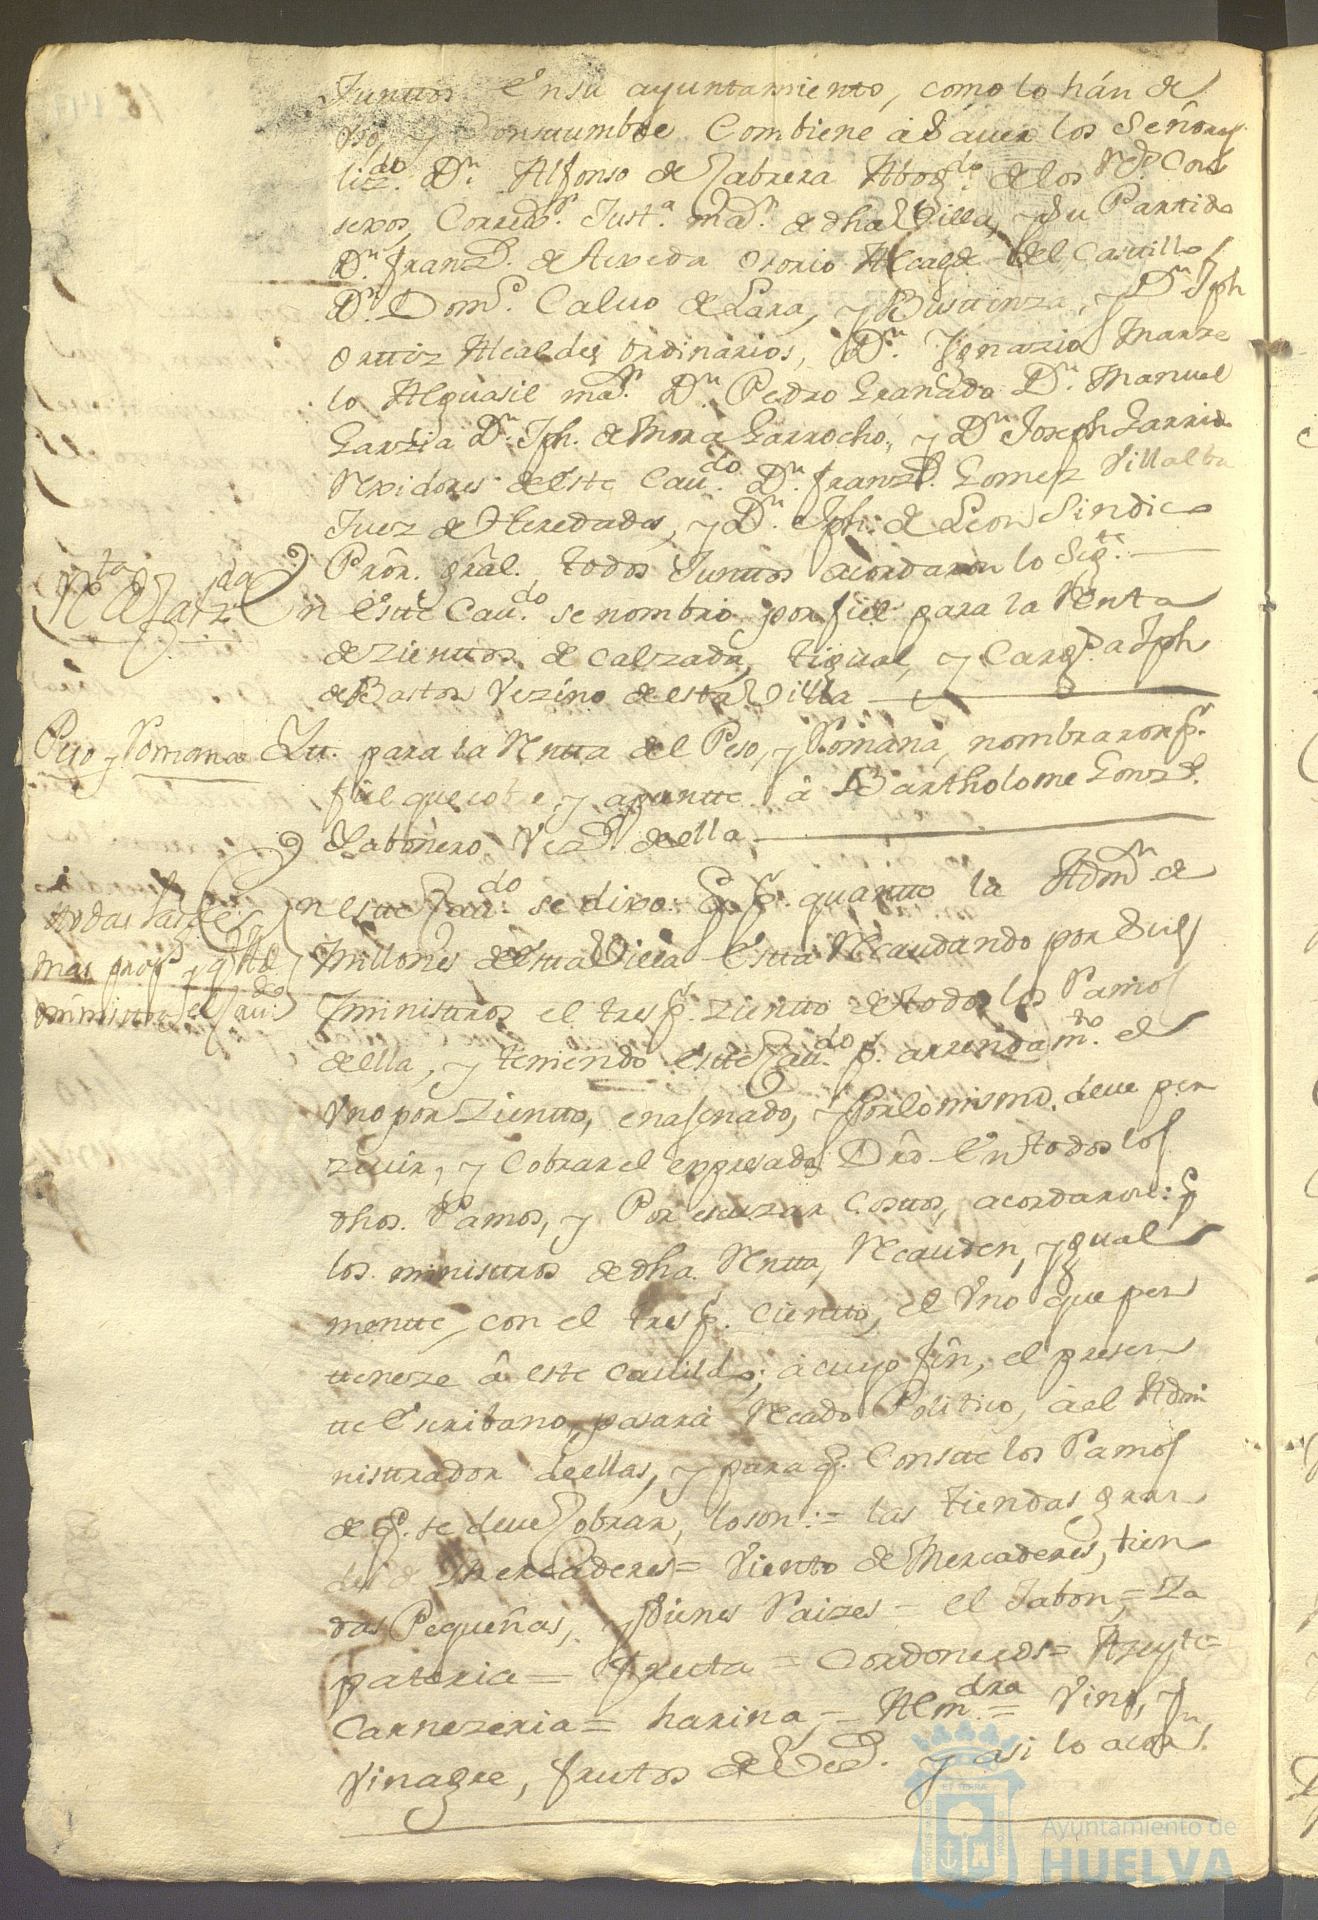 Junttos en su ayuntamiento, como lo hán de
Vso, y Consttumbre Combiene â Sauer los Señores
lizdo. Dn. Alfonso de Cabrera Abogdo. de los Rs. Con
sexos, Corregor. Justa. mar. de dha Villa, y su Partido
Dn. franzco. de Azeveda Osorio Alcayde del Casttillo
Dn. Domo. Calvo de Lara, y Busttinza, y Dn. Jph
Orttiz Alcaldes ordinarios, Dn. Ygnazio Marze
lo Alguasil mar. Dn. Pedro Granado Dn. Manuel
Garzia Dn. Jph. de Mora Garrocho, y Dn. Joseph Garrido
Rexidores de este Caudo. Dn. franzco. Gomez Villalba
Juez de Heredades, y Dn. Jph. de Leon Sindico
Prôr. grâl., todos Junttos acordaron lo Sigte.
En estte Caudo. se nombrò por fiel para la Renta
de zienttos de calzada, tigual, y Cargo. a Jph
de Bastos Vezino de esta Villa
Peso y Romana Ytt. para la Rentta del Peso, y Romana, nombraron pr.
fiel que cobre, y apuntte â Bartholome Gonzs.
Labonero Vezo. de ella
En estte Caudo. se dixo: Q. pr. quantto la Admon de
todas las
mas
Millones de Estta Villa estta Recaudando por Sus
ministtros el tres pr. zientto de todos los Ramos
de ella, y teniendo estte Caudo. pr. arrendamto. el
Vno por Zientto, enagenado, y Por lo mismo deve per
zeuir, y Cobrar el expresado Drô En todos los
dhos. Ramos, y Por escuzar Costtos, acordaron: Q
los ministtros de dha Rentta, Recauden, ygual
mentte con el tres pr. Cientto, el Vno que per
tteneze â este Cauildo; à cuyo fin, el presen
tte Escribano, pasarà Recado Politico, à el Admi
nisttrador de ellas, y para q. Constte los Ramos
de q. se deue Cobrar, lo son: = las tiendas gran
des de Mercaderes = Viento de Mercaderes, tien
das Pequeñas, y Vienes Raizes = el Jabon, = Za
pateria = Frecta = Cordoneros = Azeyte =
Carnezeria = harina, = Almdra = Vino, y
Vinagre, frutos de y asi lo acorn.
Ayuntamiento de
HUELVA